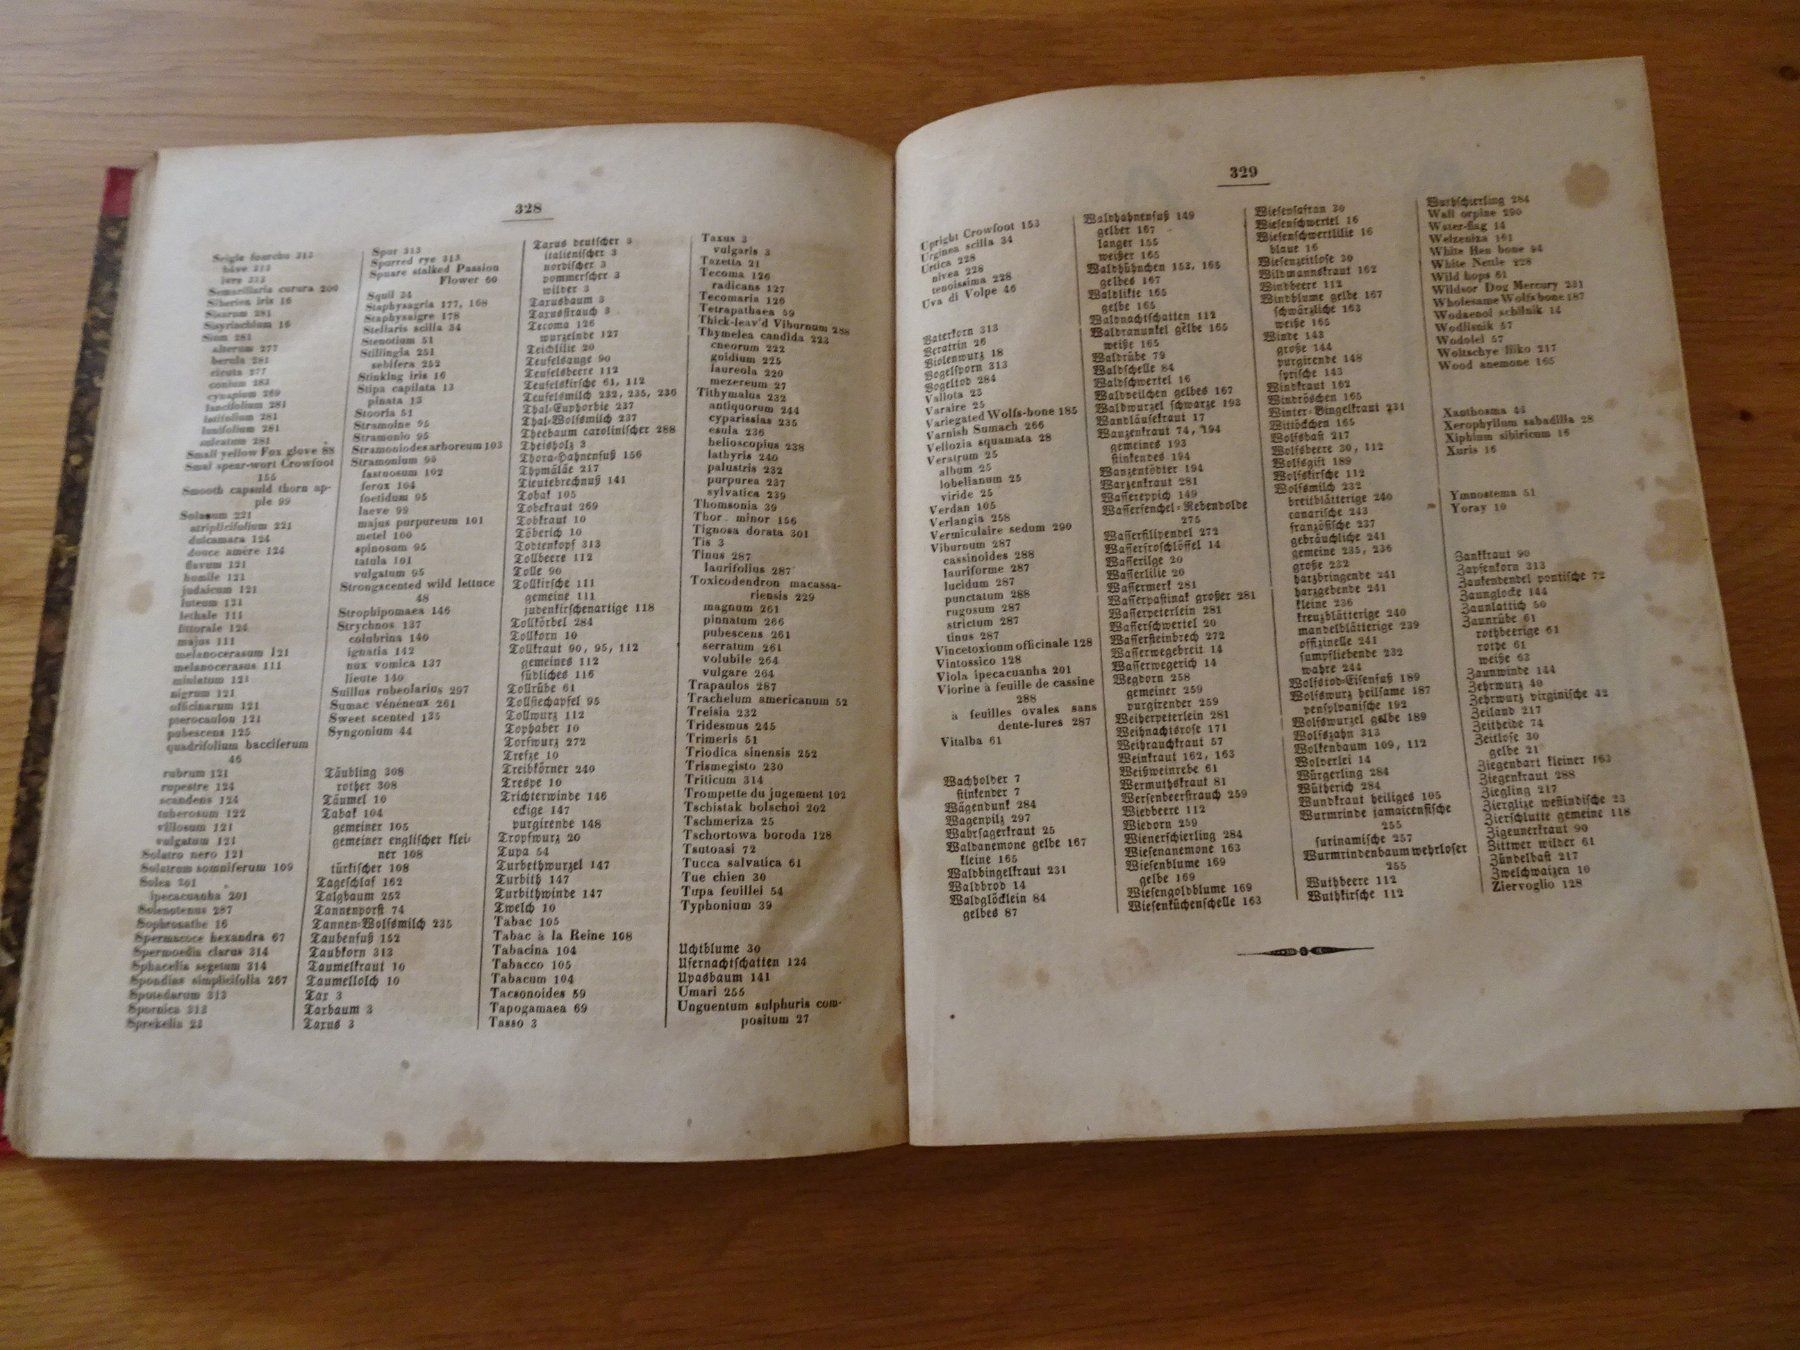 328
Seigle fourchu 313
bâve 313
ivre 313
Semarillaria curura 200
Siberien iris 16
Sisarum 281
Sisyrinchium 16
Sium 281
alterum 277
berula 281
cicuta 277
conium 283
cynapium 269
lancifolium 281
latifolium 281
Small yellow Fox glove 88
Smal spear-wort Crowfoot
155
Smooth capsuld thorn ap-
ple 99
Solanum 221
atriplicifolium 221
dulcamara 124
douce amère 124
flavum 121
humile 121
judaicum 121
luteum 121
lethale 111
littorale 124
majus 111
melanocerasum 121
melanocerasus 111
miniatum 121
nigrum 121
officinarum 121
pterocaulon 121
pubescens 125
quadrifolium bacciferum
46
rubrum 121
rupestre 124
scandens 124
tuberosum 122
villosum 121
vulgatum 121
Solatro nero 121
Solatrum somniferum 109
Soles 201
ipecacuanha 201
Solenotenus 287
Sophronathe 16
Spermacoce hexandra 67
Spermoedia clavus 314
Sphacelia segetum 314
Spondias simplicifolia 267
Spornica 313
Sprekelia 23
Spur 313
Spurred rye 313
Square stalked Passion
Flower 60
Squil 34
Staphysagria 177, 168
Staphysaigre 178
Stellaris scilla 34
Stenotium 51
Stillingia 251
sebifera 252
Stinking iris 16
Stipa capilata 13
pinata 13
Stooria 51
Stramoine 95
Stramonio 95
Stramoniodes arboreum 103
Stramonium 95
fastuosum 102
ferox 104
foetidum 95
laeve 99
majus purpureum 101
metel 100
spinosum 95
tatula 101
vulgatum 95
Strongscented wild lettuce
48
Strophipomaea 146
Strychnos 137
colubrina 140
ignatia 142
nux vomica 137
lieute 140
Suillus rubeolarius 297
Sumac vénéneux 261
Sweet scented 135
Syngonium 44
Täubling 308
rother 308
Täumel 10
Tabak 104
gemeiner 105
gemeiner englischer klei-
ner 108
türkischer 108
Tageschlaf 162
Talgbaum 252
Tannenporst 74
Tannen=Wolfsmilch 235
Taubenfuß 152
Taubkorn 313
Taumelkraut 10
Taumellolch 10
Tax 3
Taxbaum 3
Taxus 3
Taxus deutscher 3
italienischer 3
nordischer 3
pommerscher 3
wilder 3
Taxusbaum 3
Taxusstrauch 3
Tecoma 126
wurzelnde 127
Teichlilie 20
Teufelsauge 90
Teufelsbeere 112
Teufelskirsche 61, 112
Teufelsmilch 232, 235, 236
Thal=Euphorbie 237
Thal=Wolfsmilch 237
Theebaum carolinischer 288
Theisholz 3
Thora=Hahnenfuß 156
Thymäläe 217
Tieutebrechnuß 141
Tobak 105
Tobekraut 269
Tobkraut 10
Töberich 10
Todtenkopf 313
Tollbeere 112
Tolle 90
Tollkirsche 111
gemeine 111
judenkirschenartige 118
Tollkörbel 284
Tollkorn 10
Tollkraut 90, 95, 112
gemeines 112
südliches 116
Tollrübe 61
Tollstechapfel 95
Tollwurz 112
Tophaber 10
Torfwurz 272
Trefze 10
Treibkörner 240
Trespe 10
Trichterwinde 146
eckige 147
purgirende 148
Tropfwurz 20
Tupa 54
Turbethwurzel 147
Turbith 147
Turbithwinde 147
Twelch 10
Tabac 105
Tabac à la Reine 108
Tabacina 104
Tabacco 105
Tabacum 104
Tacsonoides 59
Tapogamaea 69
Tasso 3
Taxus 3
vulgaris 3
Tazetta 21
Tecoma 126
radicans 127
Tecomaria 126
Tetrapathaea 59
Thick-leav'd Viburnum 288
Thymelea candida 223
cneorum 222
gnidium 225
laureola 220
mezereum 27
Tithymalus 232
antiquorum 244
cyparissias 235
esula 236
helioscopius 238
lathyris 240
palustris 232
purpurea 237
sylvatica 239
Thomsonia 39
Thor minor 156
Tignosa dorata 301
Tis 3
Tinus 287
laurifolius 287
Toxicodendron macassa-
riensis 229
magnum 261
pinnatum 266
pubescens 261
serratum 261
volubile 264
vulgare 264
Trapaulos 287
Trachelum americanum 52
Treisia 232
Tridesmus 245
Trimeris 51
Triodica sinensis 252
Trismegisto 230
Triticum 314
Trompette du jugement 102
Tschistak bolschoi 202
Tschmeriza 25
Tschortowa boroda 128
Tsutoasi 72
Tucca salvatica 61
Tue chien 30
Tupa feuillei 54
Typhonium 39
Uchtblume 30
Ufernachtschatten 124
Upasbaum 141
Umari 255
Unguentum sulphuris com-
positum 27
329
Upright Crowfoot 153
Urginea scilla 34
Urtica 228
nivea 228
tenoissima 228
Uva di Volpe 46
Vaterkorn 313
Veratrin 26
Violenwurz 18
Vogelsporn 313
Vogeltod 284
Vallota 23
Varaire 25
Variegated Wolfs-bone 185
Varnish Sumach 266
Vellozia squamata 28
Veratrum 25
album 25
lobelianum 25
viride 25
Verdan 105
Verlangia 258
Vermiculaire sedum 290
Viburnum 287
cassinoides 288
lauriforme 287
lucidum 287
punctatum 288
rugosum 287
strictum 287
tinus 287
Vincetoxicum officinale 128
Vintossico 128
Viola ipecacuanha 201
Viorine à feuille de cassine
288
à feuilles ovales sans
dente-lures 287
Vitalba 61
Wachholder 7
stinkender 7
Wägendunk 284
Wagenpilz 297
Wahrsagerkraut 25
Waldanemone gelbe 167
kleine 165
Waldbingelkraut 231
Waldbrod 14
Waldglöcklein 84
gelbes 87
Waldhahnenfuß 149
gelber 167
langer 155
weißer 165
Waldhühnchen 153, 165
gelbes 167
Waldlilie 165
gelbe 165
Waldnachtschatten 112
Waldranunkel gelbe 165
weiße 165
Waldrübe 79
Waldschelle 84
Waldschwertel 16
Waldveilchen gelbes 167
Waldwurzel schwarze 193
Wandläusekraut 17
Wanzenkraut 74, 194
gemeines 193
stinkendes 194
Wanzentödter 194
Warzenkraut 281
Wassereppich 149
Wasserfenchel=Rebendolde
275
Wasserfillpendel 272
Wasserfroschlöffel 14
Wasserilge 20
Wasserlilie 20
Wassermerk 281
Wasserpastinak großer 281
Wasserpeterlein 281
Wasserschwertel 20
Wassersteinbrech 272
Wasserwegebreit 14
Wasserwegerich 14
Wegdorn 258
gemeiner 259
purgirender 259
Weiherpeterlein 281
Weihnachtsrose 171
Weihrauchkraut 57
Weinkraut 162, 163
Weißweinrebe 61
Wermuthskraut 81
Wersenbeerstrauch 259
Wiedbeere 112
Wiedorn 259
Wienerschierling 284
Wiesenanemone 163
Wiesenblume 169
gelbe 169
Wiesengoldblume 169
Wiesenküchenschelle 163
Wiesensafran 30
Wiesenschwertel 16
Wiesenschwertlilie 16
blaue 16
Wiesenzeitlose 30
Wildmannskraut 162
Windbeere 112
Windblume gelbe 167
schwärzliche 163
weiße 165
Winde 143
große 144
purgirende 148
syrische 143
Windkraut 162
Windröschen 165
Winter=Bingelkraut 231
Wittöckchen 165
Wolfsbast 217
Wolfsbeere 30, 112
Wolfsgift 189
Wolfskirsche 112
Wolfsmilch 232
breitblätterige 240
canarische 243
französische 237
gebräuchliche 241
gemeine 235, 236
große 232
harzbringende 241
harzgebende 241
kleine 236
kreuzblätterige 240
mandelblätterige 239
offizinelle 241
sumpfliebende 232
wahre 244
Wolfstod=Eisenhut 189
Wolfswurz heilsame 187
pensylvanische 192
Wolfswurzel gelbe 189
Wolfszahn 313
Wolkenbaum 109, 112
Wolverlei 14
Würgerling 284
Wütherich 284
Wundkraut heiliges 105
Wurmrinde jamaicensische
255
surinamische 257
Wurmrindenbaum wehrloser
255
Wuthbeere 112
Wuthkirsche 112
Wuthschierling 284
Wall orpine 290
Water-flag 14
Weizeniza 161
White Hen bone 94
White Nettle 228
Wild hops 61
Wildsor Dog Mercury 231
Wholesame Wolfsbone 187
Wodaenol schilnik 14
Wodlisnik 57
Wodolei 57
Woltschye liiko 217
Wood anemone 165
Xanthosma 44
Xerophyllum sabadilla 28
Xiphium sibiricum 16
Xuris 16
Ymnostema 51
Yoray 10
Zankkraut 90
Zapfenkorn 313
Zaukendendel pontische 72
Zaunglocke 144
Zaunlattich 50
Zaunrübe 61
rothbeerige 61
rothe 61
weiße 63
Zaunwinde 144
Zehrwurz 40
Zehrwurz virginische 42
Zeiland 217
Zeitheide 74
Zeitlose 30
gelbe 21
Ziegenbart kleiner 163
Ziegenkraut 288
Ziegling 217
Zierglize westindische 23
Zierschlutte gemeine 118
Zigeunerkraut 90
Zittwer wilder 61
Zündelbast 217
Zwelchwaizen 10
Ziervoglio 128